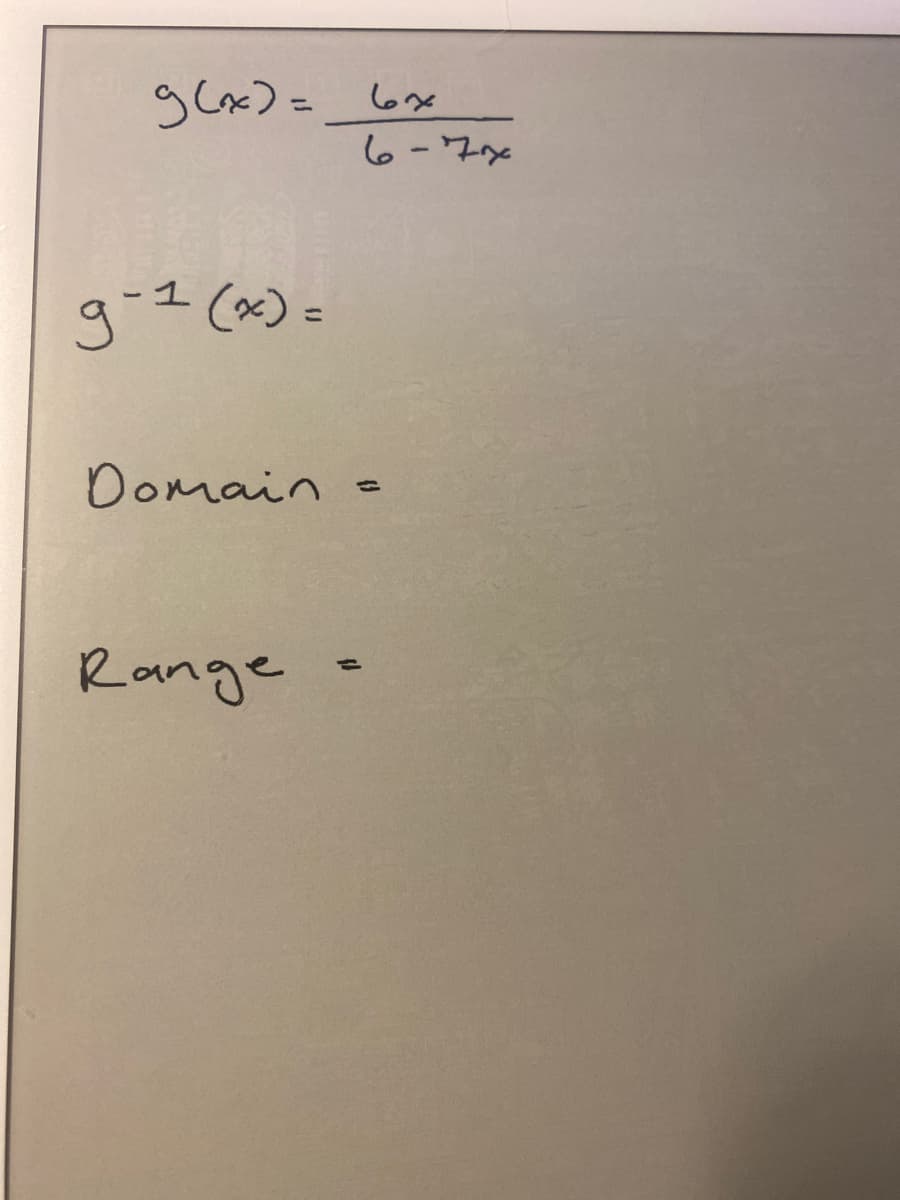 g(x) = 6x / 6 - 7x
g⁻¹(x) =
Domain =
Range =